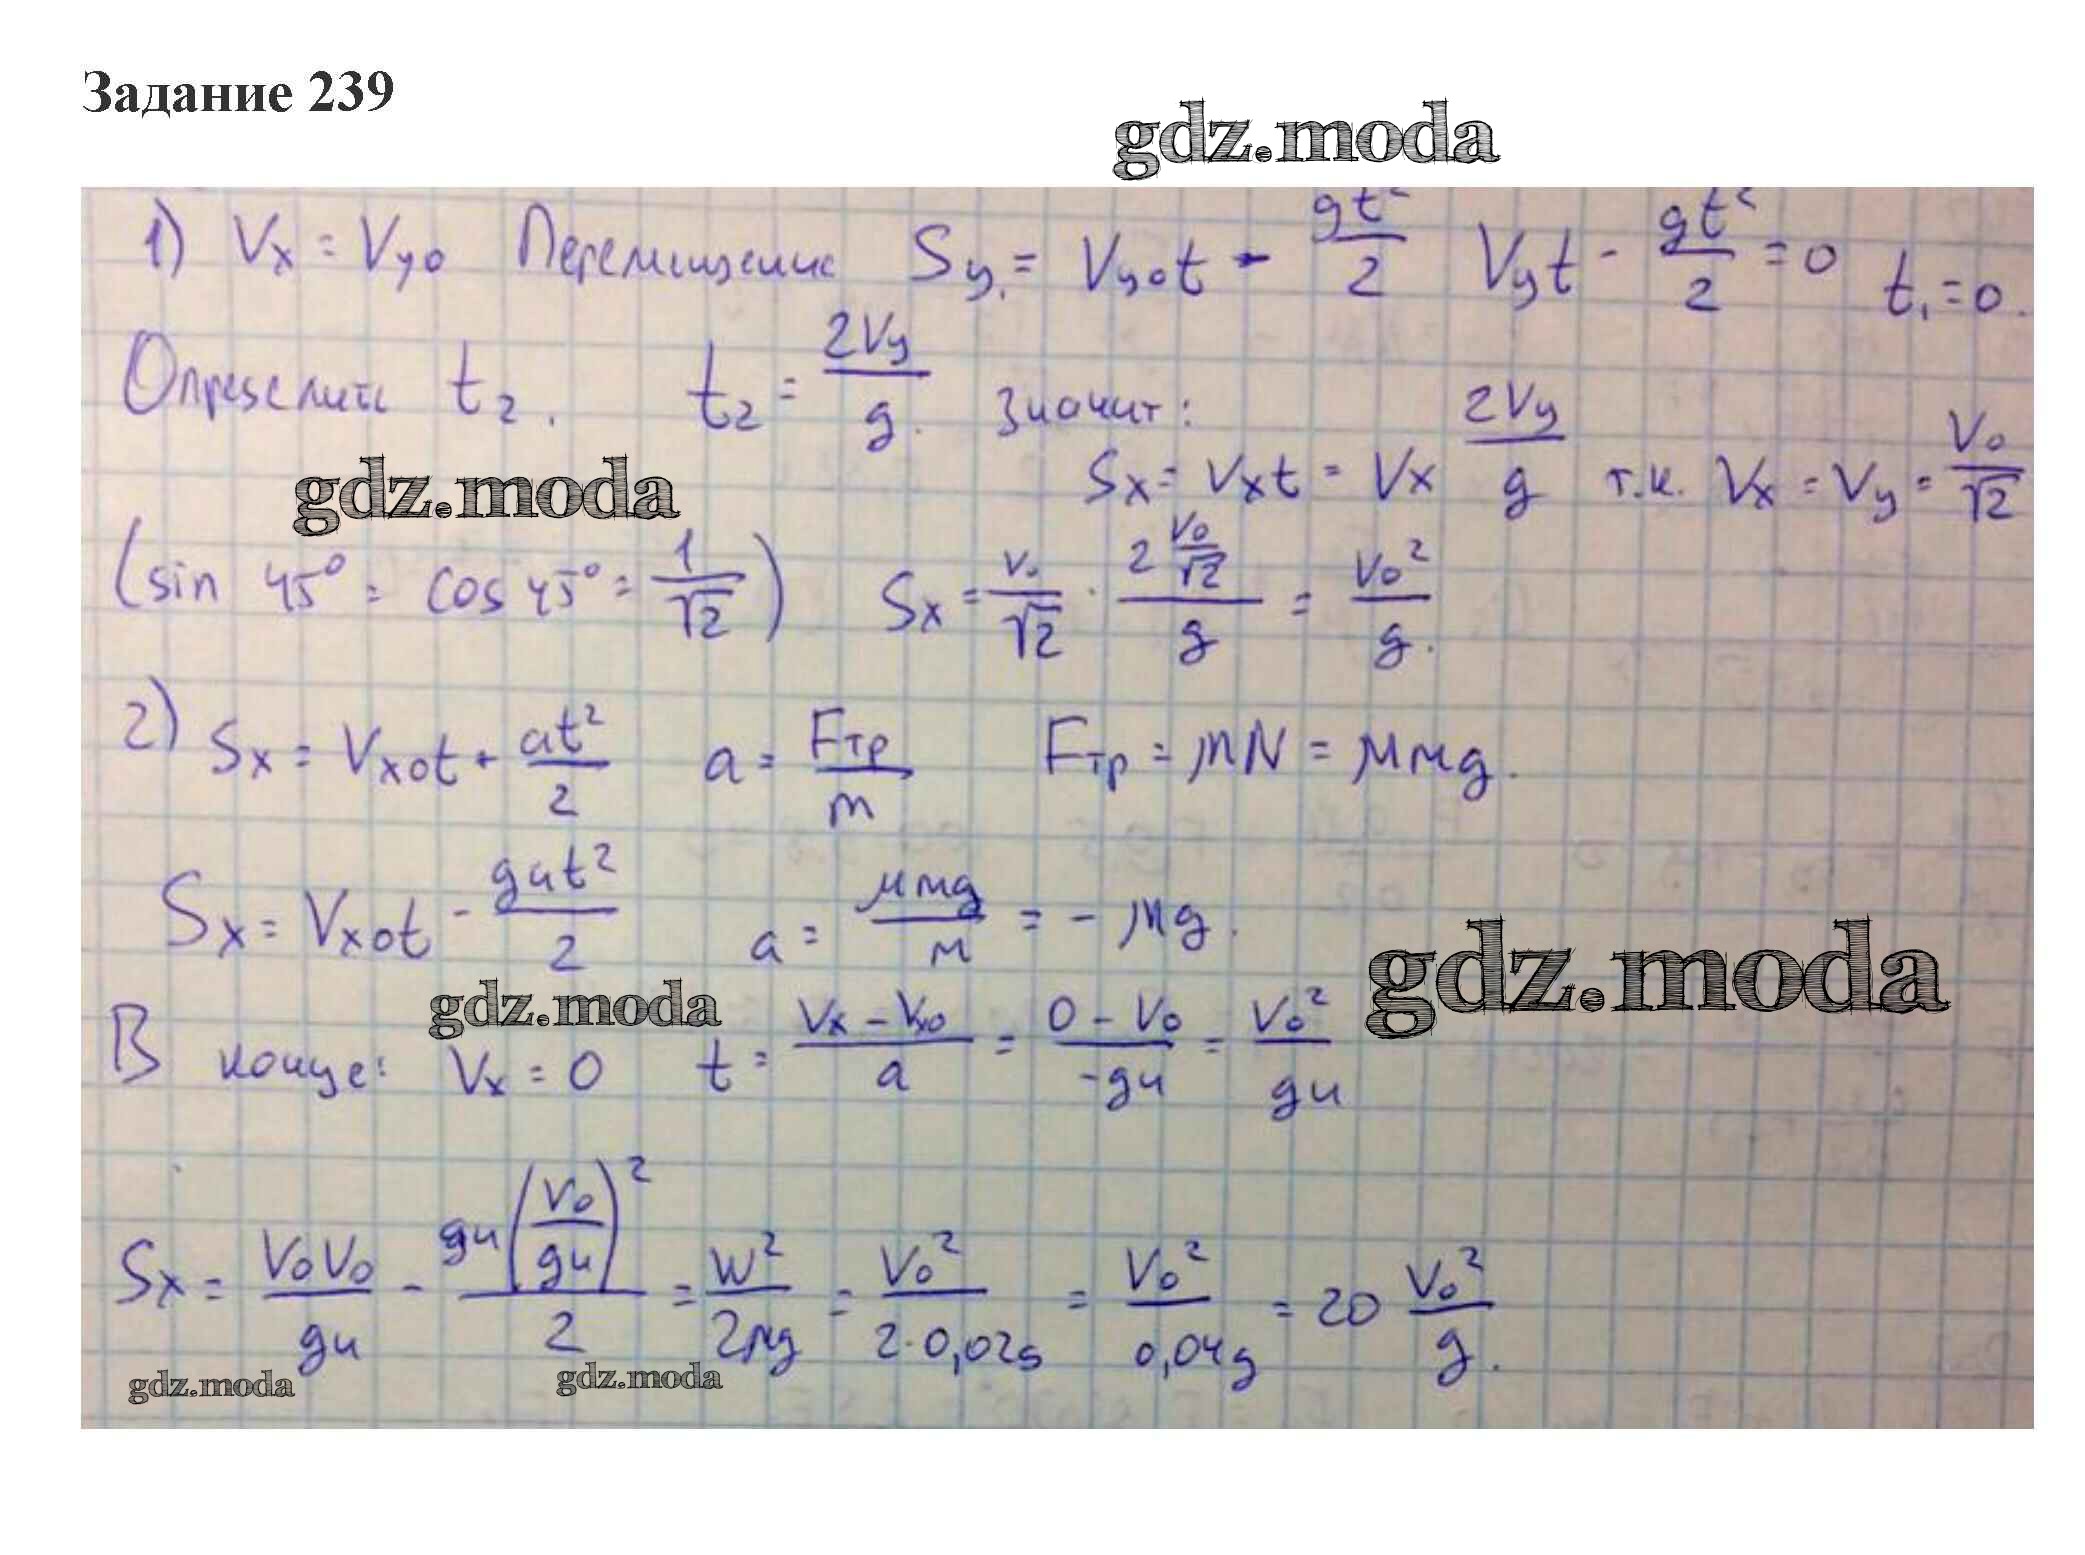 Задание 239
gdz.moda
1) Vx = Vyo Перемещение Sy. = Vyot - gt²/2 Vyt - gt²/2 = 0 t₁ = 0.
Определить t₂. t₂ = 2Vy/g. Значит:
Sx = Vxt = Vx 2Vy/g т.к. Vx = Vy = Vo/√2
gdz.moda
(sin 45° = cos 45° = 1/√2) Sx = Vo/√2 · 2 Vo/√2/g = Vo²/g.
2) Sx = Vxot + at²/2 a = Fтр/m Fтр = μN = μmg.
Sx = Vxot - gμt²/2 a = μmg/m = - μg.
gdz.moda
gdz.moda
В конце: Vx = 0 t = Vx - Vxo/a = 0 - Vo/-gμ = Vo²/gμ
Sx = VoVo/gμ - gμ(Vo/gμ)²/2 = W²/2μg = Vo²/2·0,02g = Vo²/0,04g = 20 Vo²/g.
gdz.moda
gdz.moda